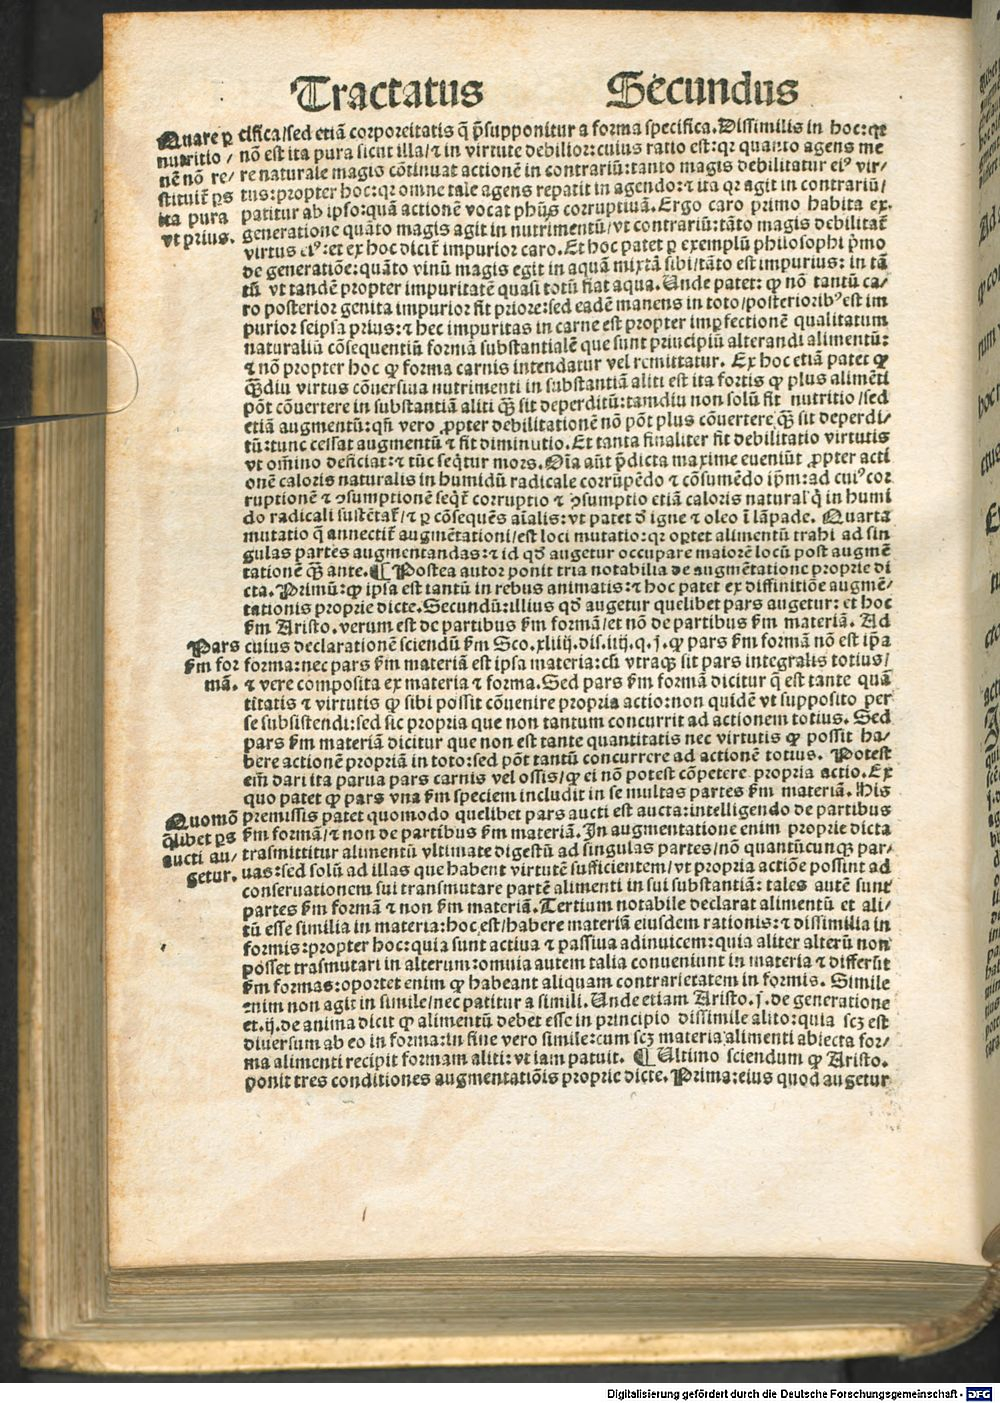 Tractatus Secundus
Quare ꝑ
nutritio /
nēnō re⸗
stituit᷑ ꝑs
ita pura
vt prius.
cifica/sed etiā corporeitatis q̄ p̄supponitur a forma specifica. Dissimilis in hoc: qꝛ
nō est ita pura sicut illa/⁊ in virtute debilior: cuius ratio est: qꝛ quanto agens me
re naturale magis cōtinuat actionē in contrariū: tanto magis debilitatur eiꝰ vir⸗
tus: propter hoc: qꝛ omne tale agens repatit in agendo: ⁊ ita qꝛ agit in contrariū/
patitur ab ipso: quā actionē vocat phūs corruptiuā. Ergo caro primo habita ex
generatione quanto magis agit in nutrimentū/vt contrariū: tāto magis debilitat᷑
virtus eiꝰ: et ex hoc dicit᷑ impurior caro. Et hoc patet ꝑ exemplū philosophi p̄mo
de generatiōe: quāto vinū magis egit in aquā mixtā sibi/tāto est impurius: in tā
tū vt tandē propter impuritatē quasi totū fiat aqua. Unde patet: ꝙ nō tantū ca⸗
ro posterior genita impurior fit priore: sed eadē manens in toto/posteriorib᷒ est im
purior seipsa prius: ⁊ hec impuritas in carne est propter imꝑfectionē qualitatum
naturaliū cōsequentiū formā substantialē que sunt principiū alterandi alimentū:
⁊ nō propter hoc ꝙ forma carnis intendatur vel remittatur. Ex hoc etiā patet ꝙ
qꝫdiu virtus cōuersiua nutrimenti in substantiā aliti est ita fortis ꝙ plus alimēti
pōt cōuertere in substantiā aliti qꝫ sit deperditū: tamdiu non solū fit nutritio/sed
etiā augmentū: qn̄ vero ꝓpter debilitationē nō pōt plus cōuertere qꝫ sit deperdi⸗
tū: tunc cessat augmentū ⁊ fit diminutio. Et tanta finaliter fit debilitatio virtutis
vt om̄ino deficiat: ⁊ tūc seq̄tur mors. Oīa aūt p̄dicta maxime eueniūt ꝓpter acti
onē caloris naturalis in humidū radicale corrūpēdo ⁊ cōsumēdo ip̄m: ad cuiꝰ cor
ruptionē ⁊ ꝯsumptionē seqt᷑ corruptio ⁊ ꝯsumptio etiā caloris natural᷒ q̄ in humi
do radicali sustētat᷑/⁊ ꝑ cōsequēs aīalis: vt patet đ igne ⁊ oleo ī lāpade. Quarta
mutatio q̄ annectit᷑ augmētationi/est loci mutatio: qꝛ oꝑtet alimentū trahi ad sin
gulas partes augmentandas: ⁊ id qđ augetur occupare maiorē locū post augmē
tationē qꝫ ante. ¶ Postea autor ponit tria notabilia de augmētatione proprie di
cta. Primū: ꝙ ipsa est tantū in rebus animatis: ⁊ hoc patet ex diffinitiōe augmē⸗
tationis proprie dicte. Secundū: illius qđ augetur quelibet pars augetur: et hoc
s̄m Aristo. verum est de partibus s̄m formā/et nō de partibus s̄m materiā. Ad
Pars
s̄m for
mā.
cuius declarationē sciendū s̄m Sco. xliiij. dis. iiij. q. j. ꝙ pars s̄m formā nō est ip̄a
forma: nec pars s̄m materiā est ipsa materia: cū vtraqꝫ sit pars integralis totius/
⁊ vere composita ex materia ⁊ forma. Sed pars s̄m formā dicitur q̄ est tante quā
titatis ⁊ virtutis ꝙ sibi possit cōuenire propria actio: non quidē vt supposito per
se subsistendi: sed sic propria que non tantum concurrit ad actionem totius. Sed
pars s̄m materiā dicitur que non est tante quantitatis nec virtutis ꝙ possit ha⸗
bere actionē propriā in toto: sed pōt tantū concurrere ad actionē totius. Potest
em̄ dari ita parua pars carnis vel ossis/ꝙ ei nō potest cōpetere propria actio. Ex
quo patet ꝙ pars vna s̄m speciem includit in se multas partes s̄m materiā. His
Quomō
q̄libet ꝑs
aucti au⸗
getur.
premissis patet quomodo quelibet pars aucti est aucta: intelligendo de partibus
s̄m formā/⁊ non de partibus s̄m materiā. In augmentatione enim proprie dicta
trasmittitur alimentū vltimate digestū ad singulas partes/nō quantūcunqꝫ par⸗
uas: sed solū ad illas que habent virtutē sufficientem/vt propria actiōe possint ad
conseruationem sui transmutare partē alimenti in sui substantiā: tales autē sunt
partes s̄m formā ⁊ non s̄m materiā. Tertium notabile declarat alimentū et ali⸗
tū esse similia in materia: hoc est/habere materiā eiusdem rationis: ⁊ dissimilia in
formis: propter hoc: quia sunt actiua ⁊ passiua adinuicem: quia aliter alterū non
posset trasmutari in alterum: omuia autem talia conueniunt in materia ⁊ differūt
s̄m formas: oportet enim ꝙ habeant aliquam contrarietatem in formis. Simile
enim non agit in simile/nec patitur a simili. Unde etiam Aristo. j. de generatione
et. ij. de anima dicit ꝙ alimentū debet esse in principio dissimile alito: quia scꝫ est
diuersum ab eo in forma: In fine vero simile: cum scꝫ materia alimenti abiecta for⸗
ma alimenti recipit formam aliti: vt iam patuit. ¶ Ultimo sciendum ꝙ Aristo.
ponit tres conditiones augmentatiōis proprie dicte. Prima: eius quod augetur
Digitalisierung gefördert durch die Deutsche Forschungsgemeinschaft - DFG